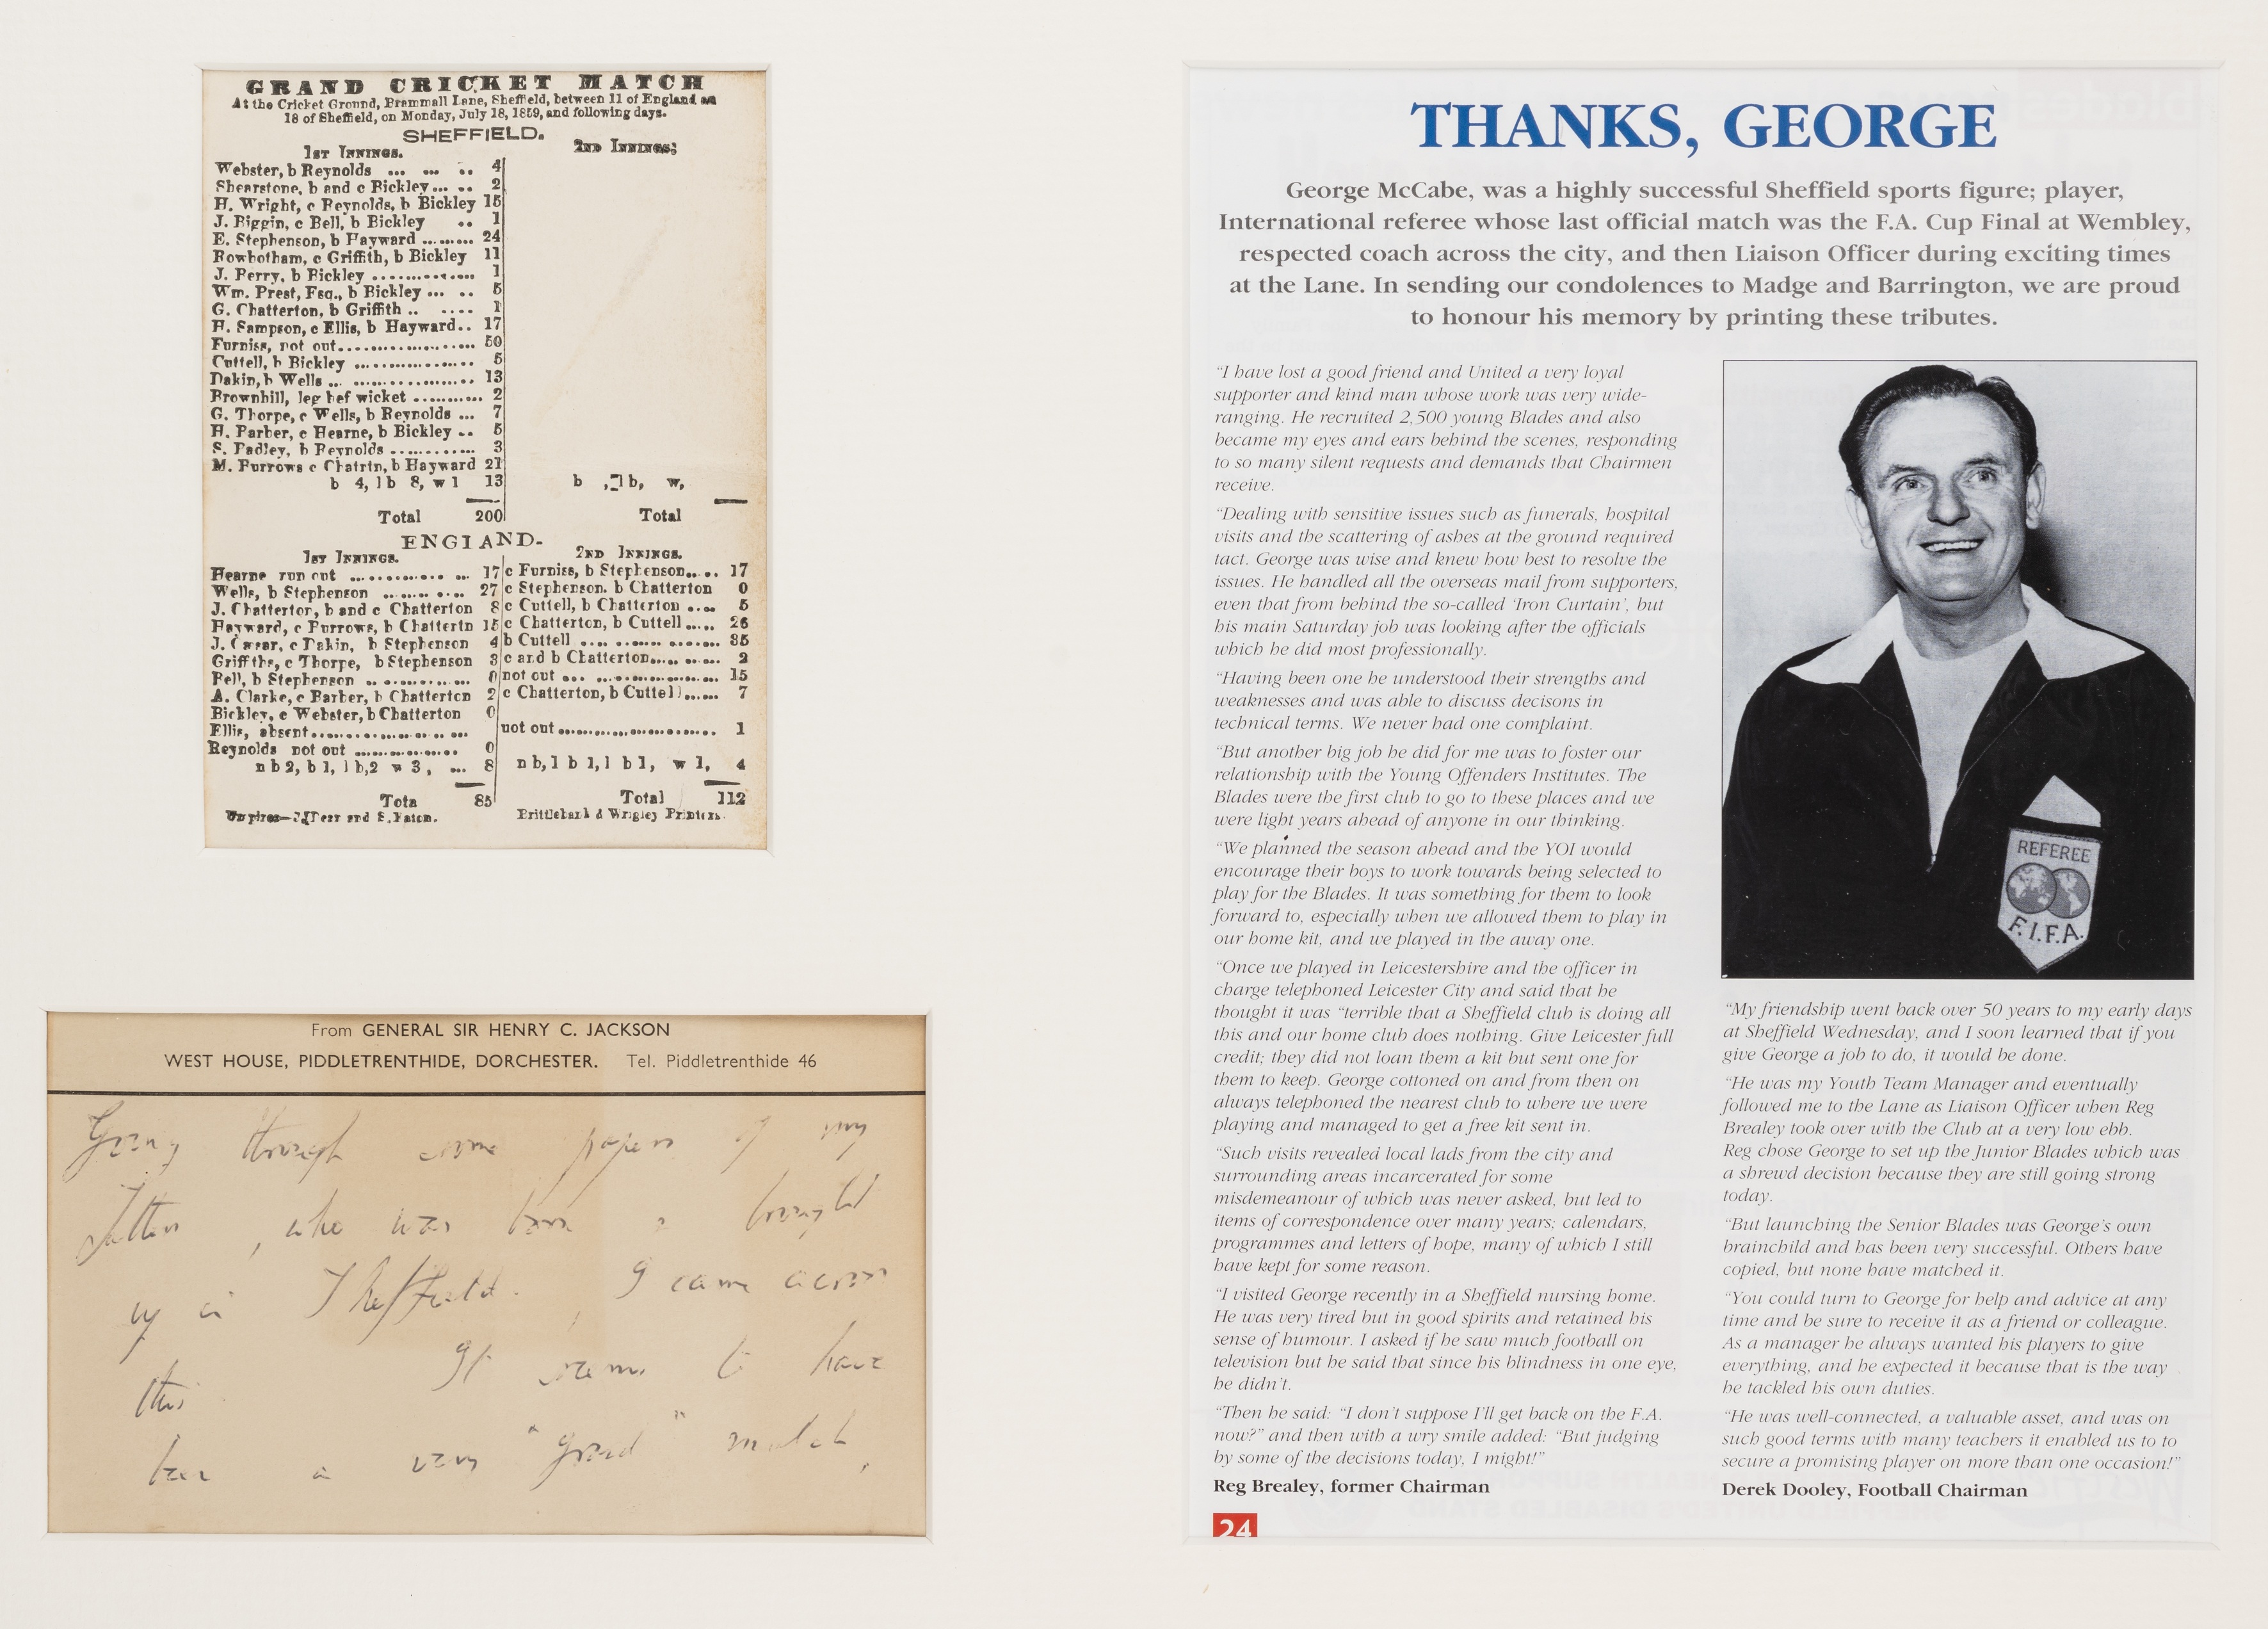 GRAND CRICKET MATCH
At the Cricket Ground, Brammall Lane, Sheffield, between 11 of England an
18 of Sheffield, on Monday, July 18, 1859, and following days.
SHEFFIELD.
1ST INNINGS. 2ND INNINGS;
Webster, b Reynolds ... ... .. 4
Shearstone, b and c Bickley... .. 2
H. Wright, c Reynolds, b Bickley 15
J. Biggin, c Bell, b Bickley .. 1
E. Stephenson, b Hayward ......... 24
Rowbotham, c Griffith, b Bickley 11
J. Perry, b Bickley ............. 1
Wm. Prest, Esq., b Bickley ... .. 5
G. Chatterton, b Griffith .. .... 1
H. Sampson, c Ellis, b Hayward.. 17
Furniss, not out.................... 50
Cuttell, b Bickley ................ 5
Dakin, b Wells ... .................. 13
Brownhill, leg bef wicket ........... 2
G. Thorpe, c Wells, b Reynolds ... 7
H. Barber, c Hearne, b Bickley .. 5
S. Padley, b Reynolds ............. 3
M. Burrows c Chatrtn, b Hayward 21
b 4, lb 8, w 1 13 b , lb, w,
Total 200 Total
ENGLAND-
1ST INNINGS. 2ND INNINGS.
Hearne run out ............... ... 17 c Furniss, b Stephenson..... 17
Wells, b Stephenson ........ .... 27 c Stephenson. b Chatterton 0
J. Chatterton, b and c Chatterton 8 c Cuttell, b Chatterton .... 5
Hayward, c Burrows, b Chattertn 15 c Chatterton, b Cuttell ..... 26
J. Cæsar, c Dakin, b Stephenson 4 b Cuttell .... ........ ....... 35
Griffths, c Thorpe, b Stephenson 3 c and b Chatterton..... ...... 2
Bell, b Stephenson .. ............ 0 not out ... .................. 15
A. Clarke, c Barber, b Chatterton 2 c Chatterton, b Cuttell...... 7
Bickley, c Webster, b Chatterton 0
Ellis, absent.................. ... not out ........................ 1
Reynolds not out ................. 0
n b 2, b 1, l b, 2 w 3, ... 8 n b, 1 b 1, l b 1, w 1, 4
Tota 85 Total 112
Umpires— and S. Eaton. Brittlebank & Wrigley Printers.
From GENERAL SIR HENRY C. JACKSON
WEST HOUSE, PIDDLETRENTHIDE, DORCHESTER. Tel. Piddletrenthide 46
Going through some papers of my
father, who was born & brought
up in Sheffield. I came across
this. It seems to have
been a very "grand" match,
THANKS, GEORGE
George McCabe, was a highly successful Sheffield sports figure; player,
International referee whose last official match was the F.A. Cup Final at Wembley,
respected coach across the city, and then Liaison Officer during exciting times
at the Lane. In sending our condolences to Madge and Barrington, we are proud
to honour his memory by printing these tributes.
"I have lost a good friend and United a very loyal
supporter and kind man whose work was very wide-
ranging. He recruited 2,500 young Blades and also
became my eyes and ears behind the scenes, responding
to so many silent requests and demands that Chairmen
receive.
"Dealing with sensitive issues such as funerals, hospital
visits and the scattering of ashes at the ground required
tact. George was wise and knew how best to resolve the
issues. He handled all the overseas mail from supporters,
even that from behind the so-called 'Iron Curtain', but
his main Saturday job was looking after the officials
which he did most professionally.
"Having been one he understood their strengths and
weaknesses and was able to discuss decisons in
technical terms. We never had one complaint.
"But another big job he did for me was to foster our
relationship with the Young Offenders Institutes. The
Blades were the first club to go to these places and we
were light years ahead of anyone in our thinking.
"We planned the season ahead and the YOI would
encourage their boys to work towards being selected to
play for the Blades. It was something for them to look
forward to, especially when we allowed them to play in
our home kit, and we played in the away one.
"Once we played in Leicestershire and the officer in
charge telephoned Leicester City and said that he
thought it was "terrible that a Sheffield club is doing all
this and our home club does nothing. Give Leicester full
credit; they did not loan them a kit but sent one for
them to keep. George cottoned on and from then on
always telephoned the nearest club to where we were
playing and managed to get a free kit sent in.
"Such visits revealed local lads from the city and
surrounding areas incarcerated for some
misdemeanour of which was never asked, but led to
items of correspondence over many years; calendars,
programmes and letters of hope, many of which I still
have kept for some reason.
"I visited George recently in a Sheffield nursing home.
He was very tired but in good spirits and retained his
sense of humour. I asked if he saw much football on
television but he said that since his blindness in one eye,
he didn't.
"Then he said: "I don't suppose I'll get back on the F.A.
now?" and then with a wry smile added: "But judging
by some of the decisions today, I might!"
Reg Brealey, former Chairman
24
REFEREE
F.I.F.A.
"My friendship went back over 50 years to my early days
at Sheffield Wednesday, and I soon learned that if you
give George a job to do, it would be done.
"He was my Youth Team Manager and eventually
followed me to the Lane as Liaison Officer when Reg
Brealey took over with the Club at a very low ebb.
Reg chose George to set up the Junior Blades which was
a shrewd decision because they are still going strong
today.
"But launching the Senior Blades was George's own
brainchild and has been very successful. Others have
copied, but none have matched it.
"You could turn to George for help and advice at any
time and be sure to receive it as a friend or colleague.
As a manager he always wanted his players to give
everything, and he expected it because that is the way
he tackled his own duties.
"He was well-connected, a valuable asset, and was on
such good terms with many teachers it enabled us to to
secure a promising player on more than one occasion!"
Derek Dooley, Football Chairman